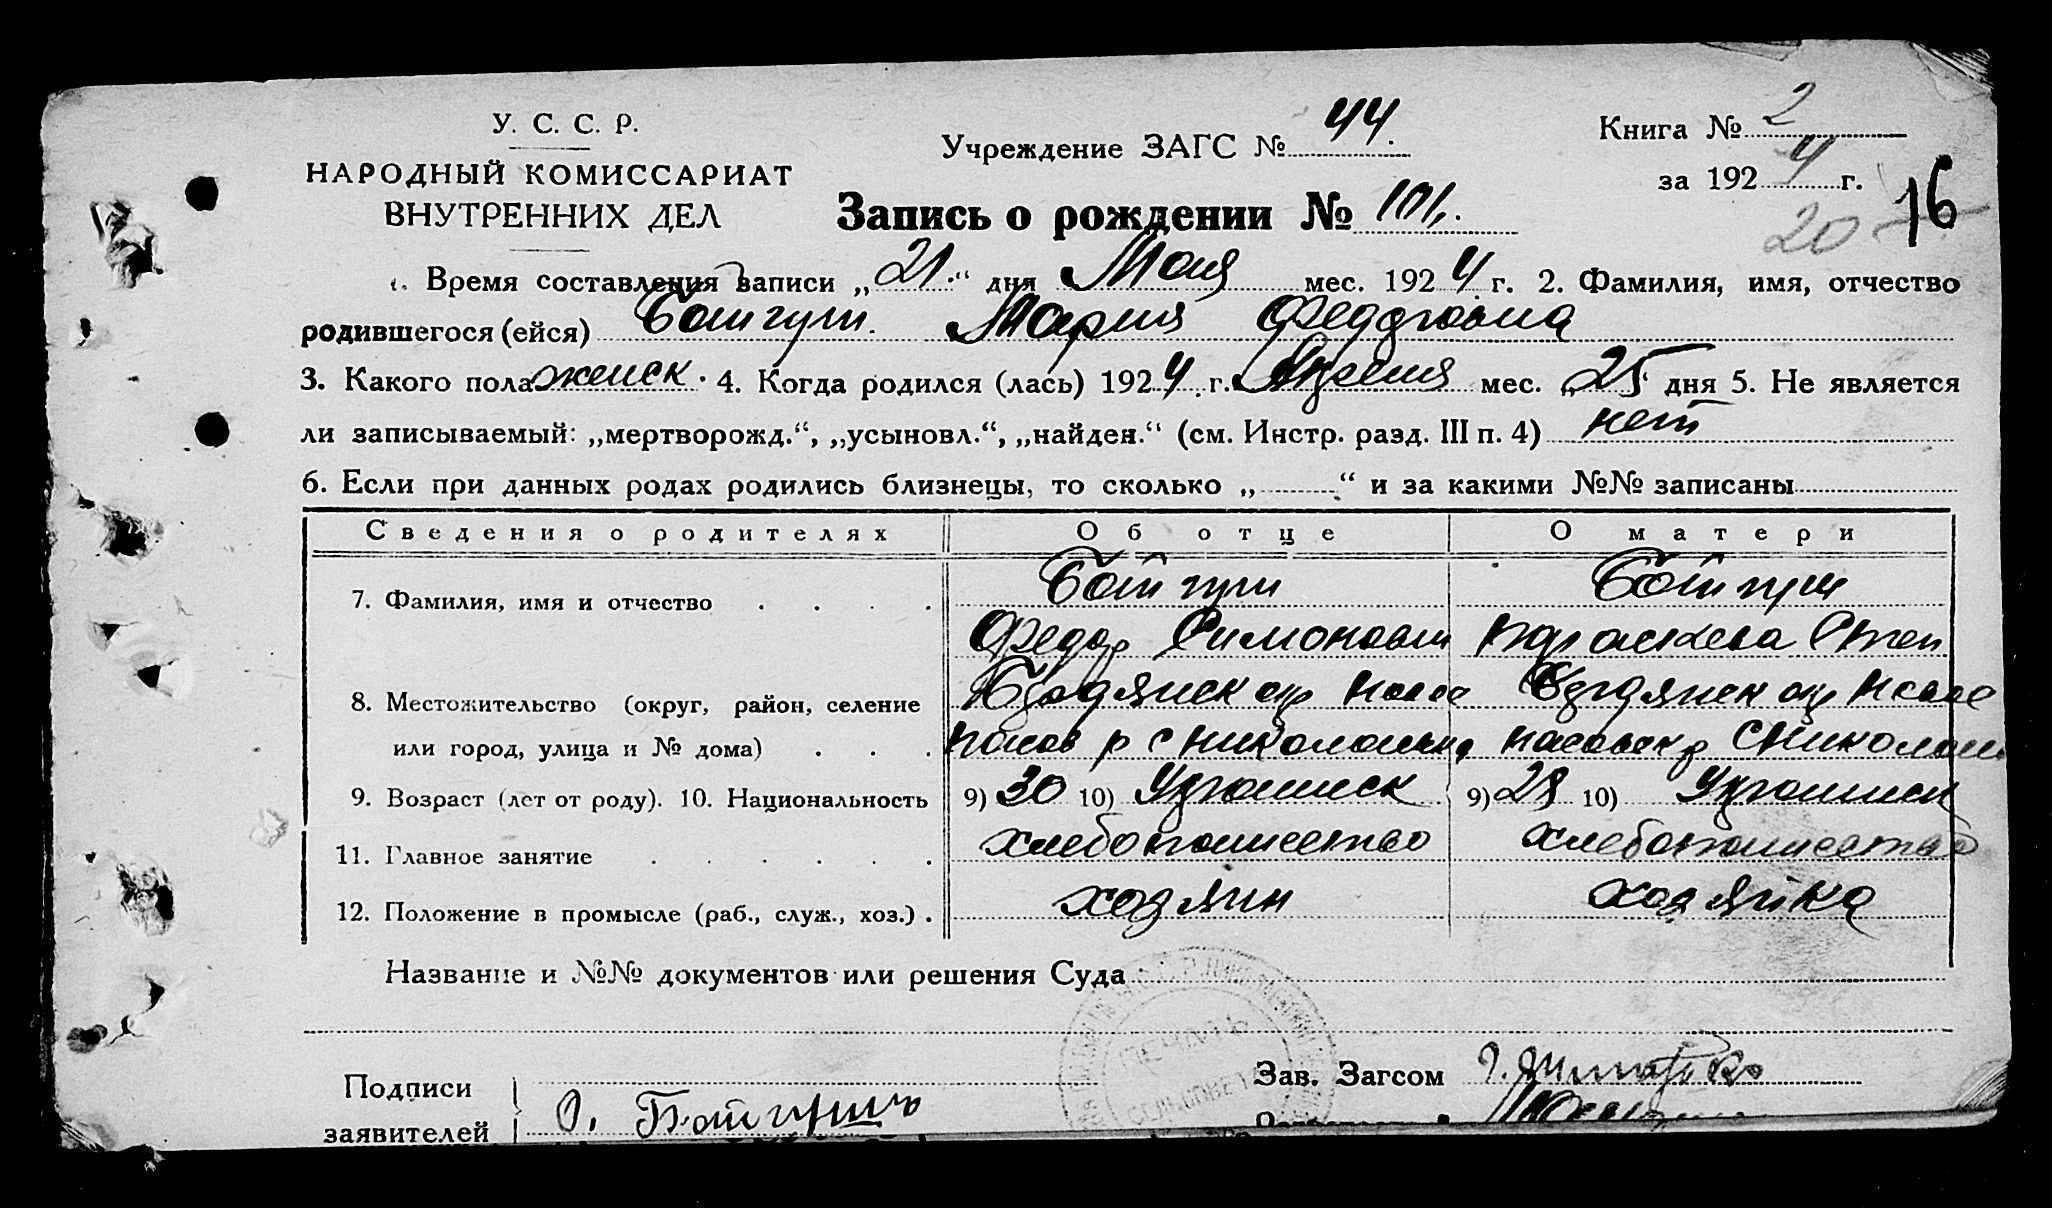 У. С. С. Р.
НАРОДНЫЙ КОМИССАРИАТ
ВНУТРЕННИХ ДЕЛ
Учреждение ЗАГС № 44.
Книга № 2
за 1924 г.
16
20
Запись о рождении № 101.
1. Время составления записи „21“ дня Мая мес. 1924 г. 2. Фамилия, имя, отчество
родившегося (ейся) Мария Федоровна
3. Какого пола женск. 4. Когда родился (лась) 1924 г. Апреля мес. „25“ дня 5. Не является
ли записываемый: „мертворожд.“, „усыновл.“, „найден.“ (см. Инстр. разд. III п. 4) нет
6. Если при данных родах родились близнецы, то сколько „ “ и за какими №№ записаны
Сведения о родителях Об отце О матери
7. Фамилия, имя и отчество
Федор Симонович Параскева Степ
8. Местожительство (округ, район, селение Бердянск окр Бердянск окр
или город, улица и № дома) р с Николаевка с Николаев
9. Возраст (лет от роду). 10. Национальность 9) 30 10) Украинск 9) 28 10) Украинск
11. Главное занятие хлебопашество хлебопашество
12. Положение в промысле (раб., служ., хоз.) хозяин хозяйка
Название и №№ документов или решения Суда
Подписи
заявителей
Зав. Загсом